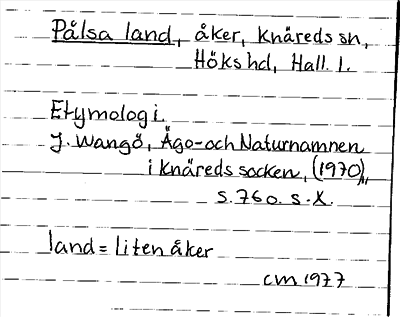 Pålsa land, åker, Knäreds sn,
Höks hd, Hall. l.
Etymologi.
J. Wangö, Ägo- och Naturnamnen
i Knäreds socken, (1970),
s. 760. s. X.
land = liten åker
CM 1977